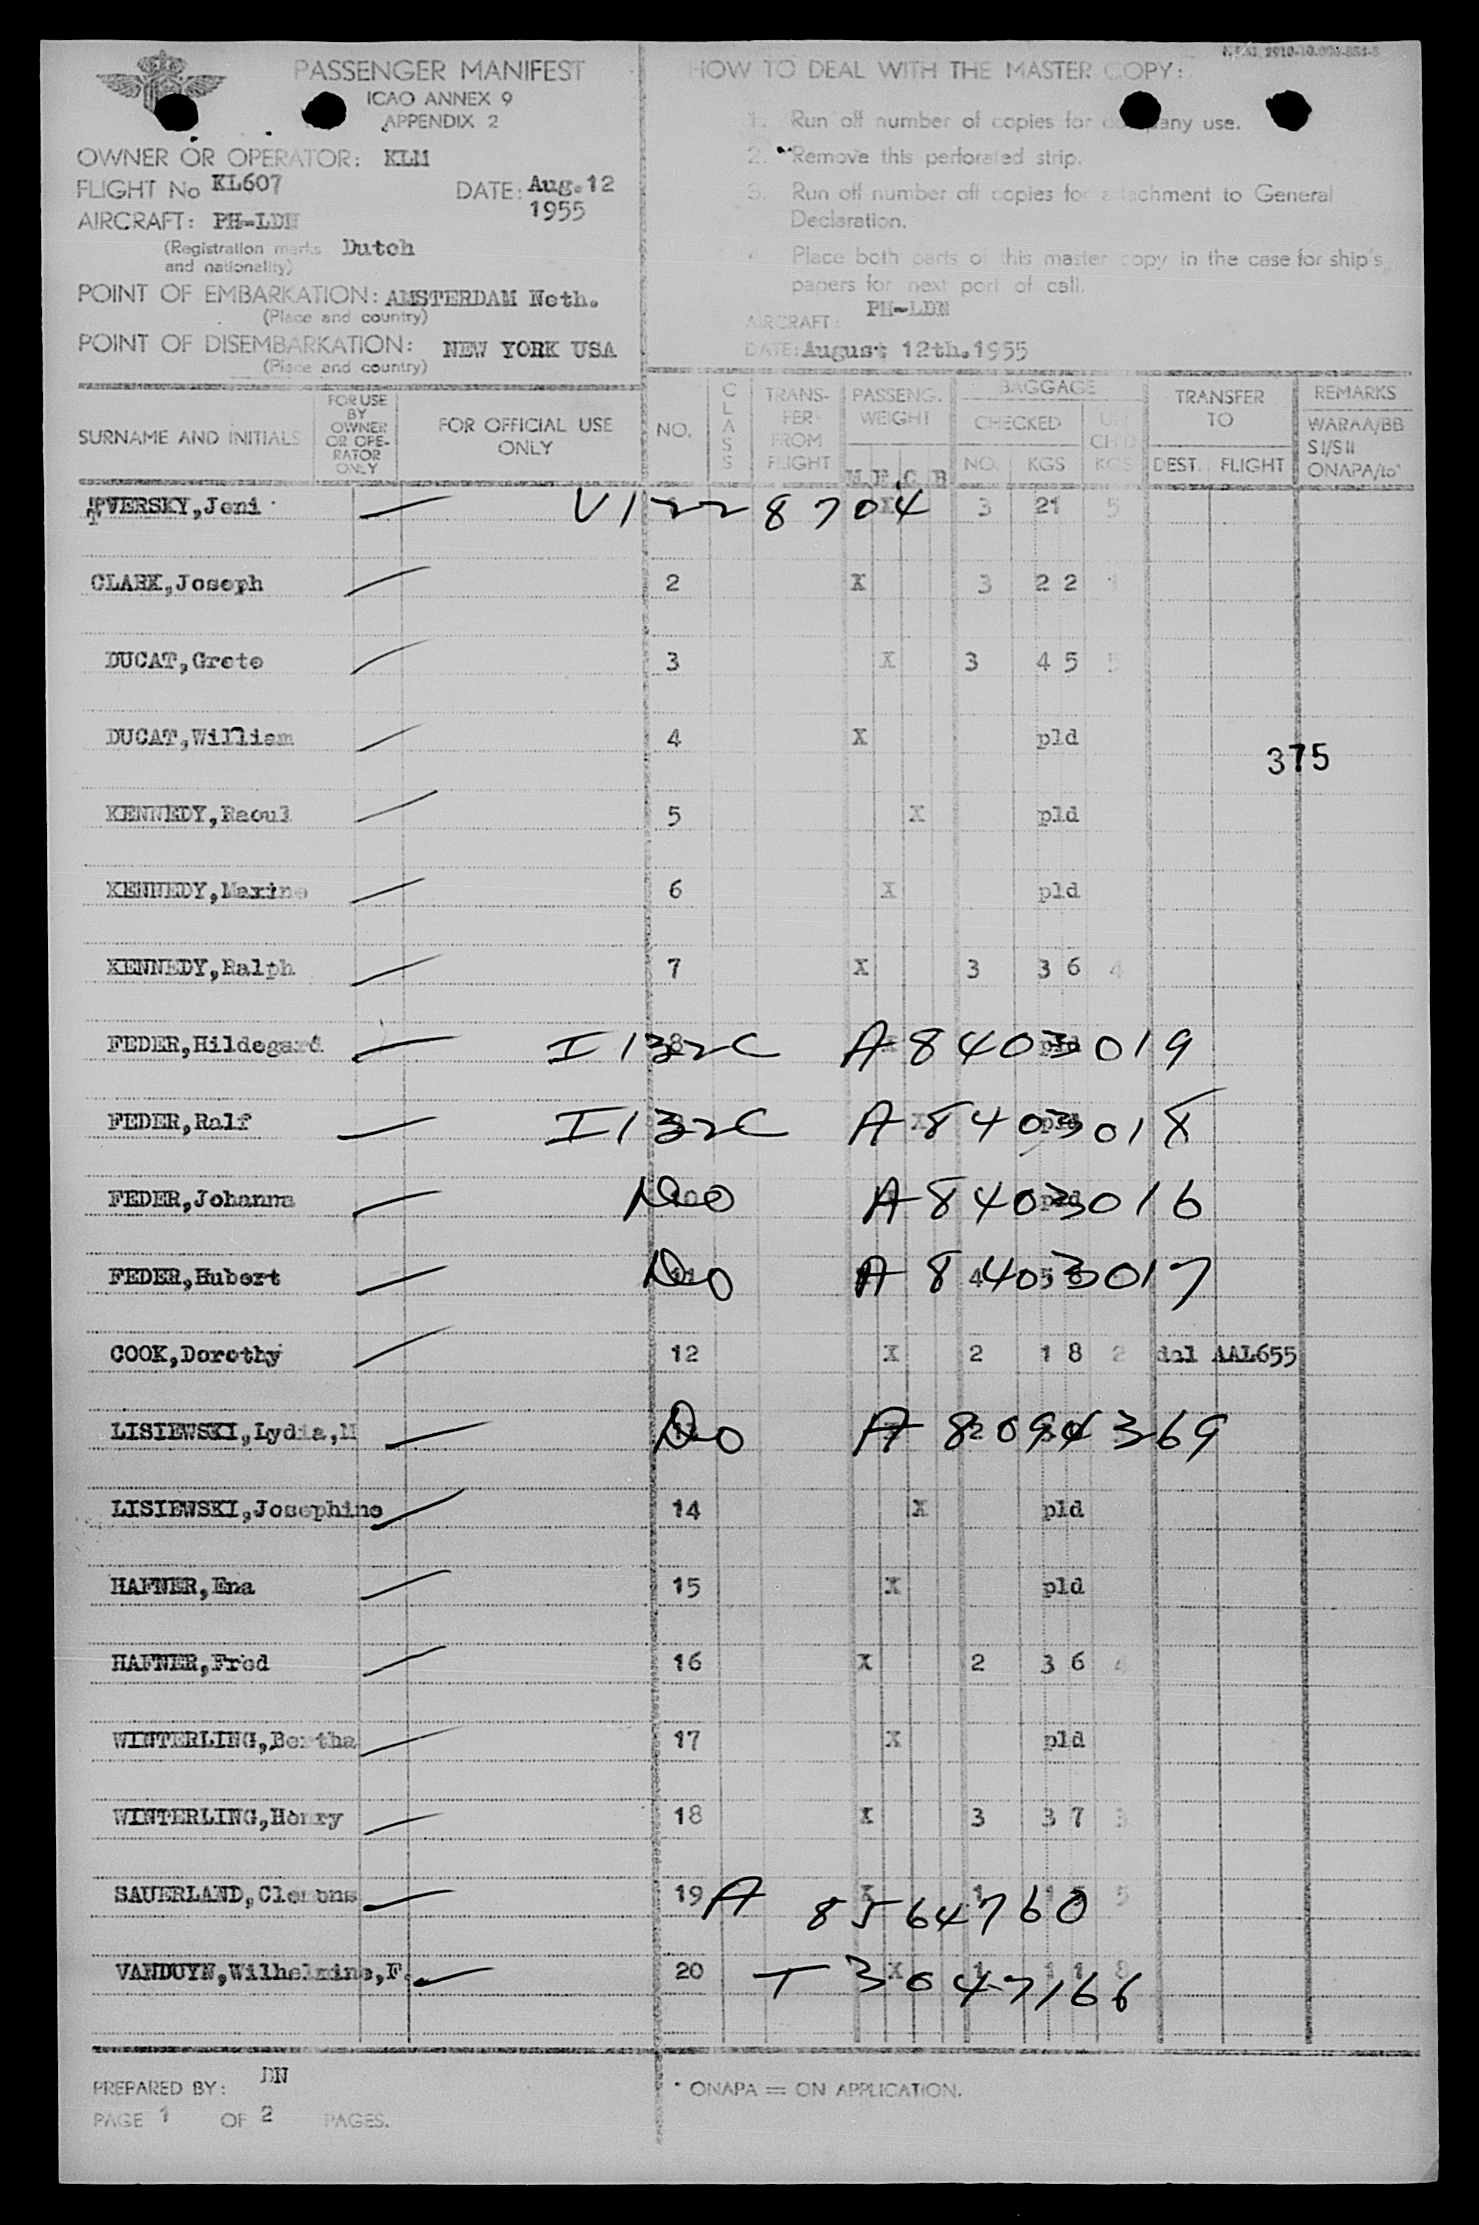 PASSENGER MANIFEST
ICAO ANNEX 9
APPENDIX 2
OWNER OR OPERATOR: KLM
FLIGHT No KL607 DATE: Aug.12
1955
AIRCRAFT: PH-LDN
(Registration marks Dutch
and nationality)
POINT OF EMBARKATION: AMSTERDAM Neth.
(Place and country)
POINT OF DISEMBARKATION: NEW YORK USA
(Place and country)
HOW TO DEAL WITH THE MASTER COPY:
1. Run off number of copies for company use.
2. Remove this perforated strip.
3. Run off number off copies for attachment to General
Declaration.
Place both parts of this master copy in the case for ship's
papers for next port of call.
AIRCRAFT: PH-LDN
DATE: August 12th.1955
SURNAME AND INITIALS
FOR USE
BY
OWNER
OR OPE-
RATOR
ONLY
FOR OFFICIAL USE
ONLY
NO.
CLASS
TRANS-
FER
FROM
FLIGHT
PASSENG.
WEIGHT
M. F. C. B
BAGGAGE
CHECKED
NO. KGS
UN
CH'D
KGS
TRANSFER
TO
DEST. FLIGHT
REMARKS
WARAA/BB
SI/SII
ONAPA/to*
TVERSKY,Jeni V1228704 X 3 21 5
CLARK,Joseph 2 X 3 22
DUCAT,Grete 3 X 3 45 5
DUCAT,William 4 X pld
375
KENNEDY,Raoul 5 X pld
KENNEDY,Maxine 6 X pld
KENNEDY,Ralph 7 X 3 36 4
FEDER,Hildegard I132C 8 A8403019 pld
FEDER,Ralf I132C X A8403018
FEDER,Johanna Do 10 A8403016
FEDER,Hubert Do 11 A8403017 4 5
COOK,Dorothy 12 X 2 18 2 dal AAL655
LISIEWSKI,Lydia,M Do 13 A8094369 2
LISIEWSKI,Josephine 14 X pld
HAFNER,Ena 15 X pld
HAFNER,Fred 16 X 2 36 4
WINTERLING,Bertha 17 X pld
WINTERLING,Henry 18 X 3 37 3
SAUERLAND,Clemens 19 A 8564760 X 1 5
VANDUYN,Wilhelmine,F. 20 T 3047166 X 1
PREPARED BY: DN
PAGE 1 OF 2 PAGES.
* ONAPA = ON APPLICATION.